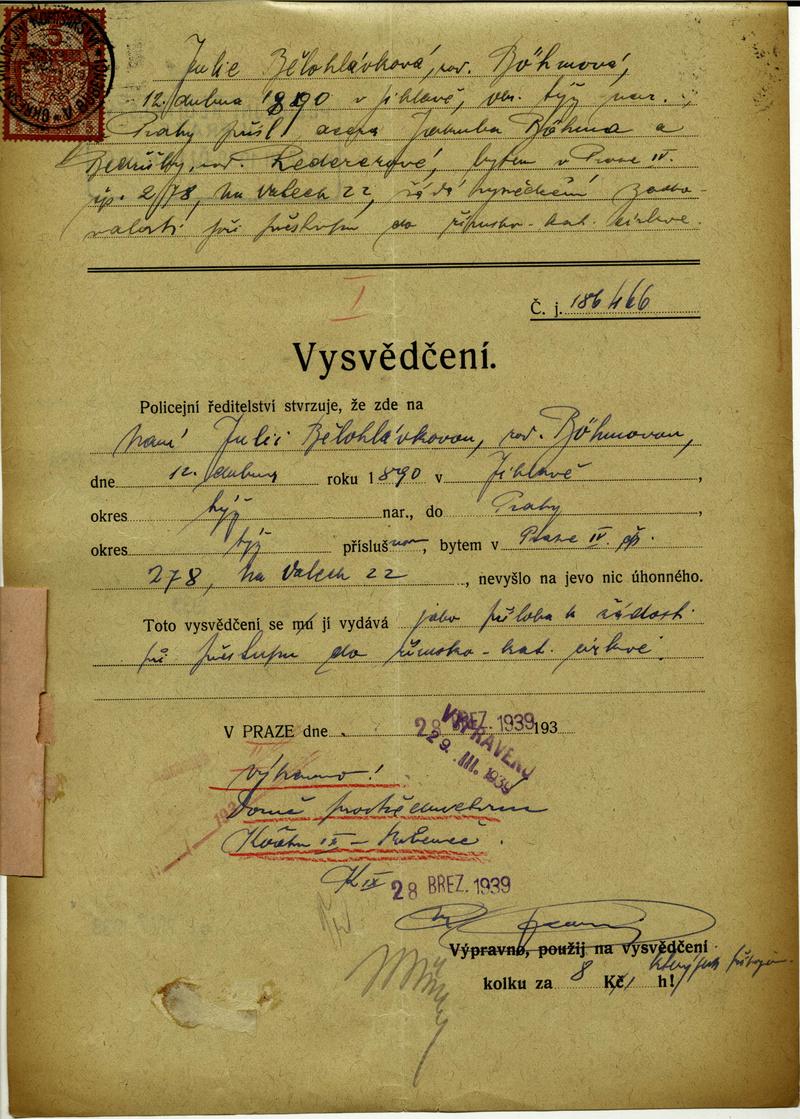 Julie Bělohlávková, roz. Böhmová,
12. dubna 1890 v Jihlavě, okr. týž nar.,
Prahy přísl. dcera Jakuba Böhma a
Bedřišky, roz. Ledererové, bytem v Praze IV.
čp. 278, Na Valech 22, žádá vysvědčení zacho-
valosti při přestupu do římsko-kat. církve.
I
Č. j. 186466
Vysvědčení.
Policejní ředitelství stvrzuje, že zde na
paní Julii Bělohlávkovou, roz. Böhmovou,
dne 12. dubna roku 1890 v Jihlavě,
okres týž nar., do Prahy,
okres týž příslušnou, bytem v Praze IV. čp.
278, Na Valech 22, nevyšlo na jevo nic úhonného.
Toto vysvědčení se mu jí vydává jako příloha k žádosti
při přestupu do římsko-kat. církve.
V PRAZE dne 28 BŘEZ. 1939 193
VYPRAVENO
29. III. 1939
28 BŘEZ. 1939
Výpravno, použij na vysvědčení
kolku za 8 Kč h!